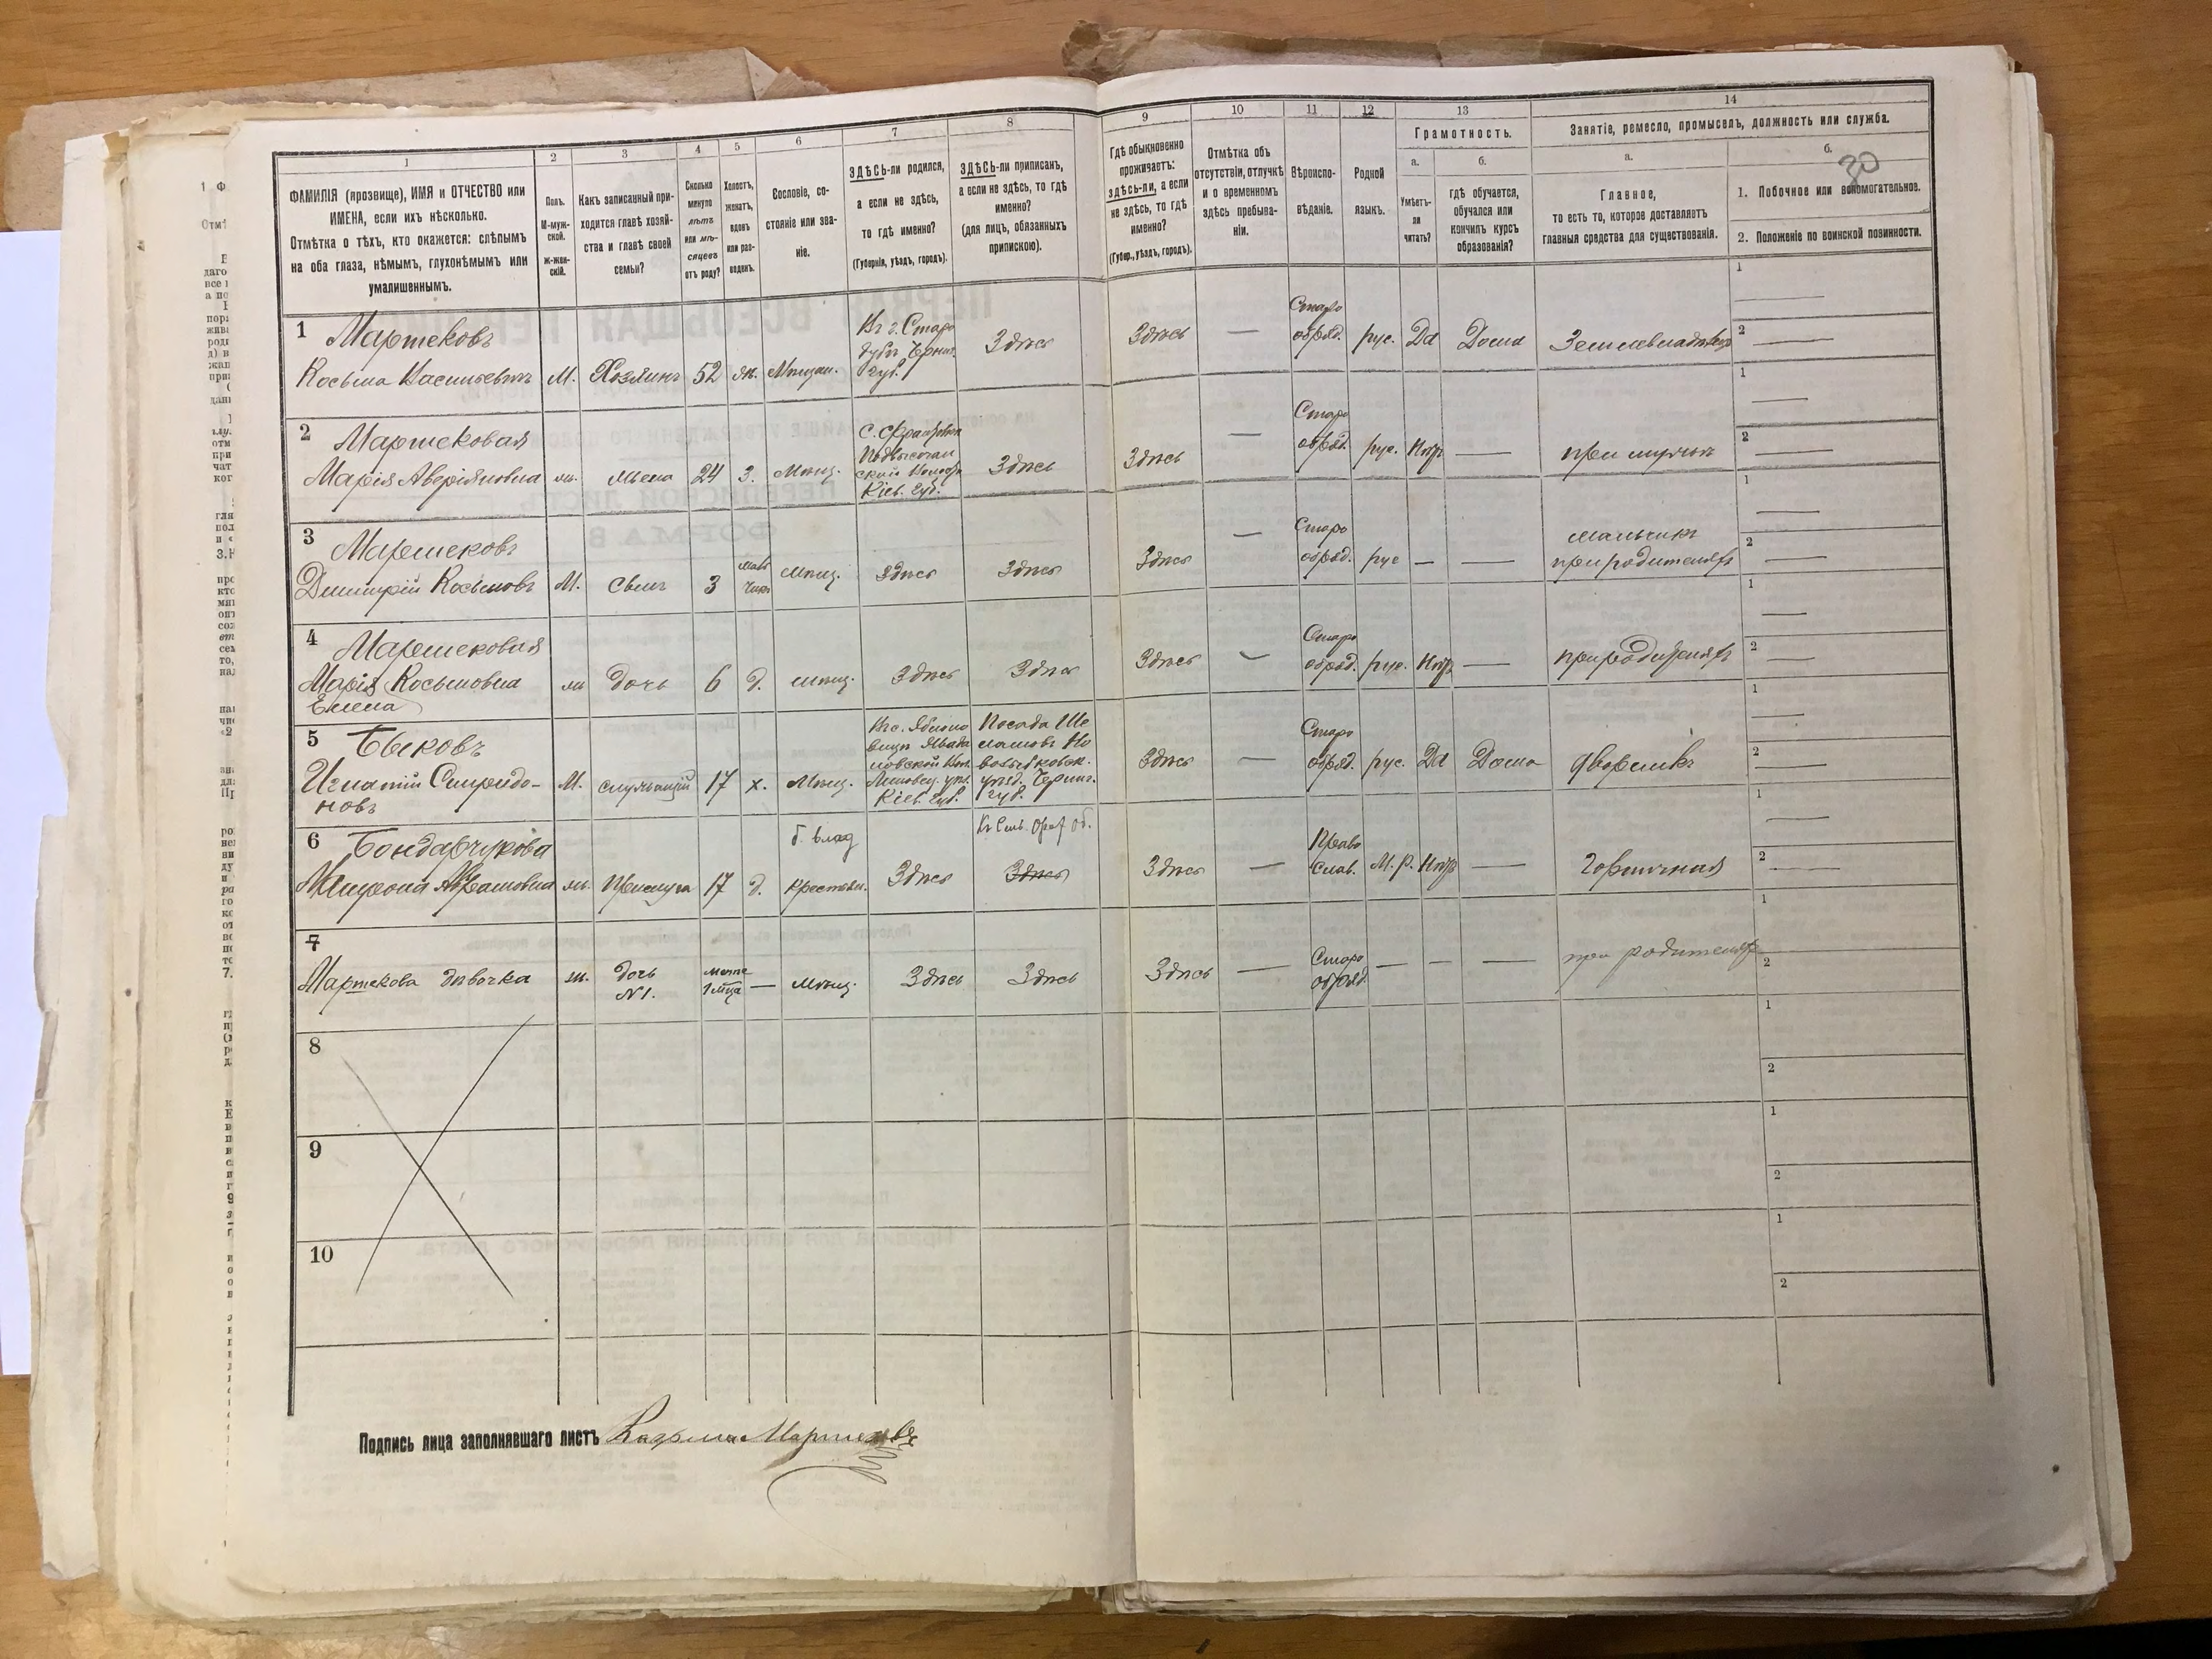 30
1
ФАМИЛІЯ (прозвище), ИМЯ и ОТЧЕСТВО или
ИМЕНА, если ихъ нѣсколько.
Отмѣтка о тѣхъ, кто окажется: слѣпымъ
на оба глаза, нѣмымъ, глухонѣмымъ или
умалишеннымъ.
2
Полъ.
М-муж-
ской.
Ж-жен-
скій.
3
Какъ записанный при-
ходится главѣ хозяй-
ства и главѣ своей
семьи?
4
Сколько
минуло
лѣтъ
или мѣ-
сяцевъ
отъ роду?
5
Холостъ,
женатъ,
вдовъ
или раз-
веденъ.
6
Сословіе, со-
стояніе или зва-
ніе.
7
ЗДѢСЬ-ли родился,
а если не здѣсь,
то гдѣ именно?
(Губернія, уѣздъ, городъ).
8
ЗДѢСЬ-ли приписанъ,
а если не здѣсь, то гдѣ
именно?
(для лицъ, обязанныхъ
припискою).
9
Гдѣ обыкновенно
проживаетъ:
здѣсь-ли, а если
не здѣсь, то гдѣ
именно?
(Губер., уѣздъ, городъ).
10
Отмѣтка объ
отсутствіи, отлучкѣ
и о временномъ
здѣсь пребыва-
ніи.
11
Вѣроиспо-
вѣданіе.
12
Родной
языкъ.
13
Грамотность.
а.
Умѣетъ-
ли
читать?
б.
гдѣ обучается,
обучался или
кончилъ курсъ
образованія?
14
Занятіе, ремесло, промыселъ, должность или служба.
а.
Главное,
то есть то, которое доставляетъ
главныя средства для существованія.
б.
1. Побочное или вспомогательное.
2. Положеніе по воинской повинности.
1
Мартековъ
Косьма Васильевичъ
М.
Хозяинъ
52
жн.
Мѣщан.
Въ г. Старо
дубѣ, Черниг.
губ.
Здѣсь
Здѣсь
—
Старо
обряд.
рус.
Да
Дома
Землевладѣлецъ
1 —
2 —
2
Мартековая
Марія Аверіяновна
ж.
жена
24
З.
Мѣщ.
Кіев. Губ.
Здѣсь
Здѣсь
—
Старо
обряд.
рус.
Нѣтъ
—
при мужѣ
1 —
2 —
3
Мартековъ
Димитрій Косьмовъ
М.
Сынъ
3
Маль
чикъ
Мѣщ.
Здѣсь
Здѣсь
Здѣсь
—
Старо
обряд.
рус
—
—
мальчикъ
при родителяхъ
1 —
2 —
4
Мартековая
Марія Косьмовна
Елена
ж
дочь
6
д.
мѣщ.
Здѣсь
Здѣсь
Здѣсь
—
Старо
обряд.
рус.
Нѣтъ
—
при родителяхъ
1 —
2 —
5
Быковъ
Игнатій Спиридо-
новъ
М.
служащій
17
х.
Мѣщ.
Липовец. уѣз.
Кіев. Губ.
Посада Ше
ломовъ Но
возыбковск.
уѣзд. Черниг.
губ.
Здѣсь
—
Старо
обряд.
рус.
Да
Дома
дворникъ
1 —
2 —
6
Бондарчукова
ж.
Прислуга
17
д.
б. влад
крестьян.
Здѣсь
Здѣсь
Здѣсь
—
Право
слав.
М. р.
Нѣтъ
—
Горничная
1 —
2 —
7
Мартекова дѣвочка
ж.
дочь
N1.
—
Мѣщ.
Здѣсь
Здѣсь
Здѣсь
—
Старо
обряд.
—
—
—
при родителяхъ
1
2
8
1
2
9
1
2
10
1
2
Подпись лица заполнявшаго листъ Козьма Мартековъ